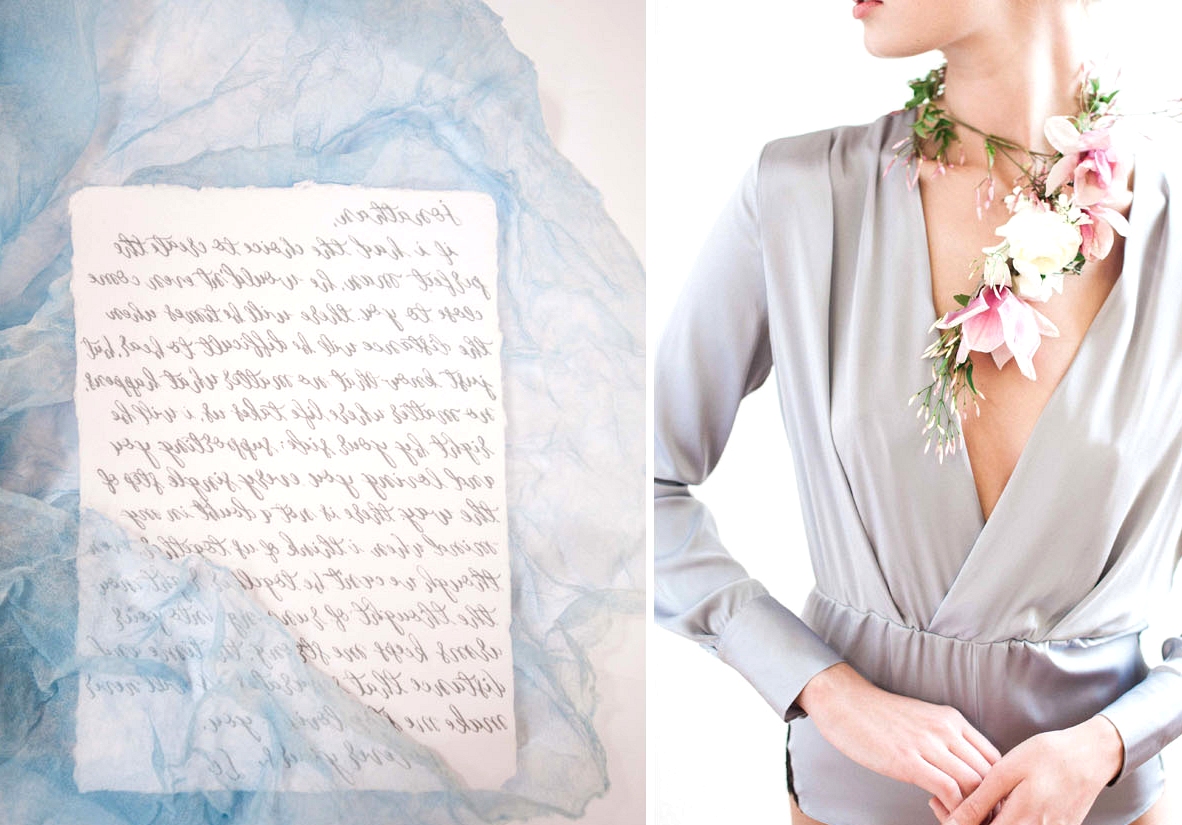 jonathan,
if i had the choice to create the
perfect man, he would'nt even come
close to you. there will be times when
the distance will be difficult to bear, but
just know that no matter what happens,
no matter where life takes us, i will be
right by your side; supporting you
and loving you every single step of
the way. there is not a doubt in my
mind when i think of us together. even
though we can't be together right now,
the thought of running into your
arms keeps me strong. the time and
distance that separates us will never
make me stop loving you.